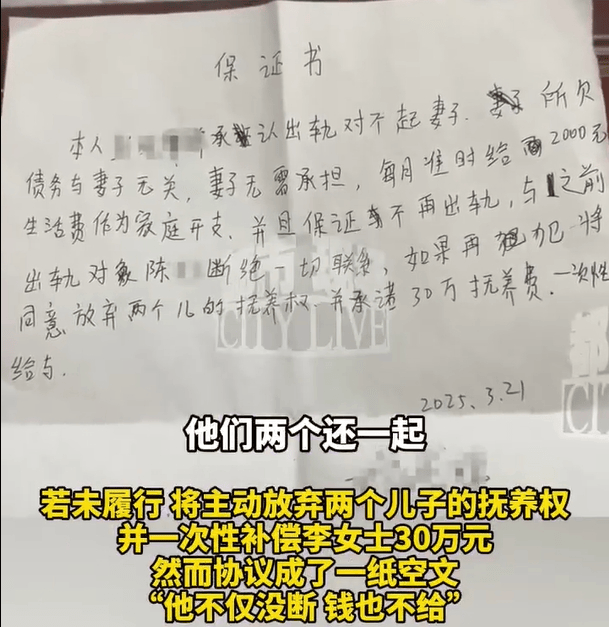 保证书
本人 承认出轨对不起妻子. 所欠
债务与妻子无关,妻子无需承担,每月准时给2000元
生活费作为家庭开支.并且保证不再出轨,与之前
出轨对象陈 断绝一切联系,如果再犯将
同意放弃两个儿的抚养权.并承诺30万抚养费.一次性
给与.
2025.3.21
CITY LIVE
都
CI
他们两个还一起
若未履行 将主动放弃两个儿子的抚养权
并一次性补偿李女士30万元
然而协议成了一纸空文
“他不仅没断 钱也不给”